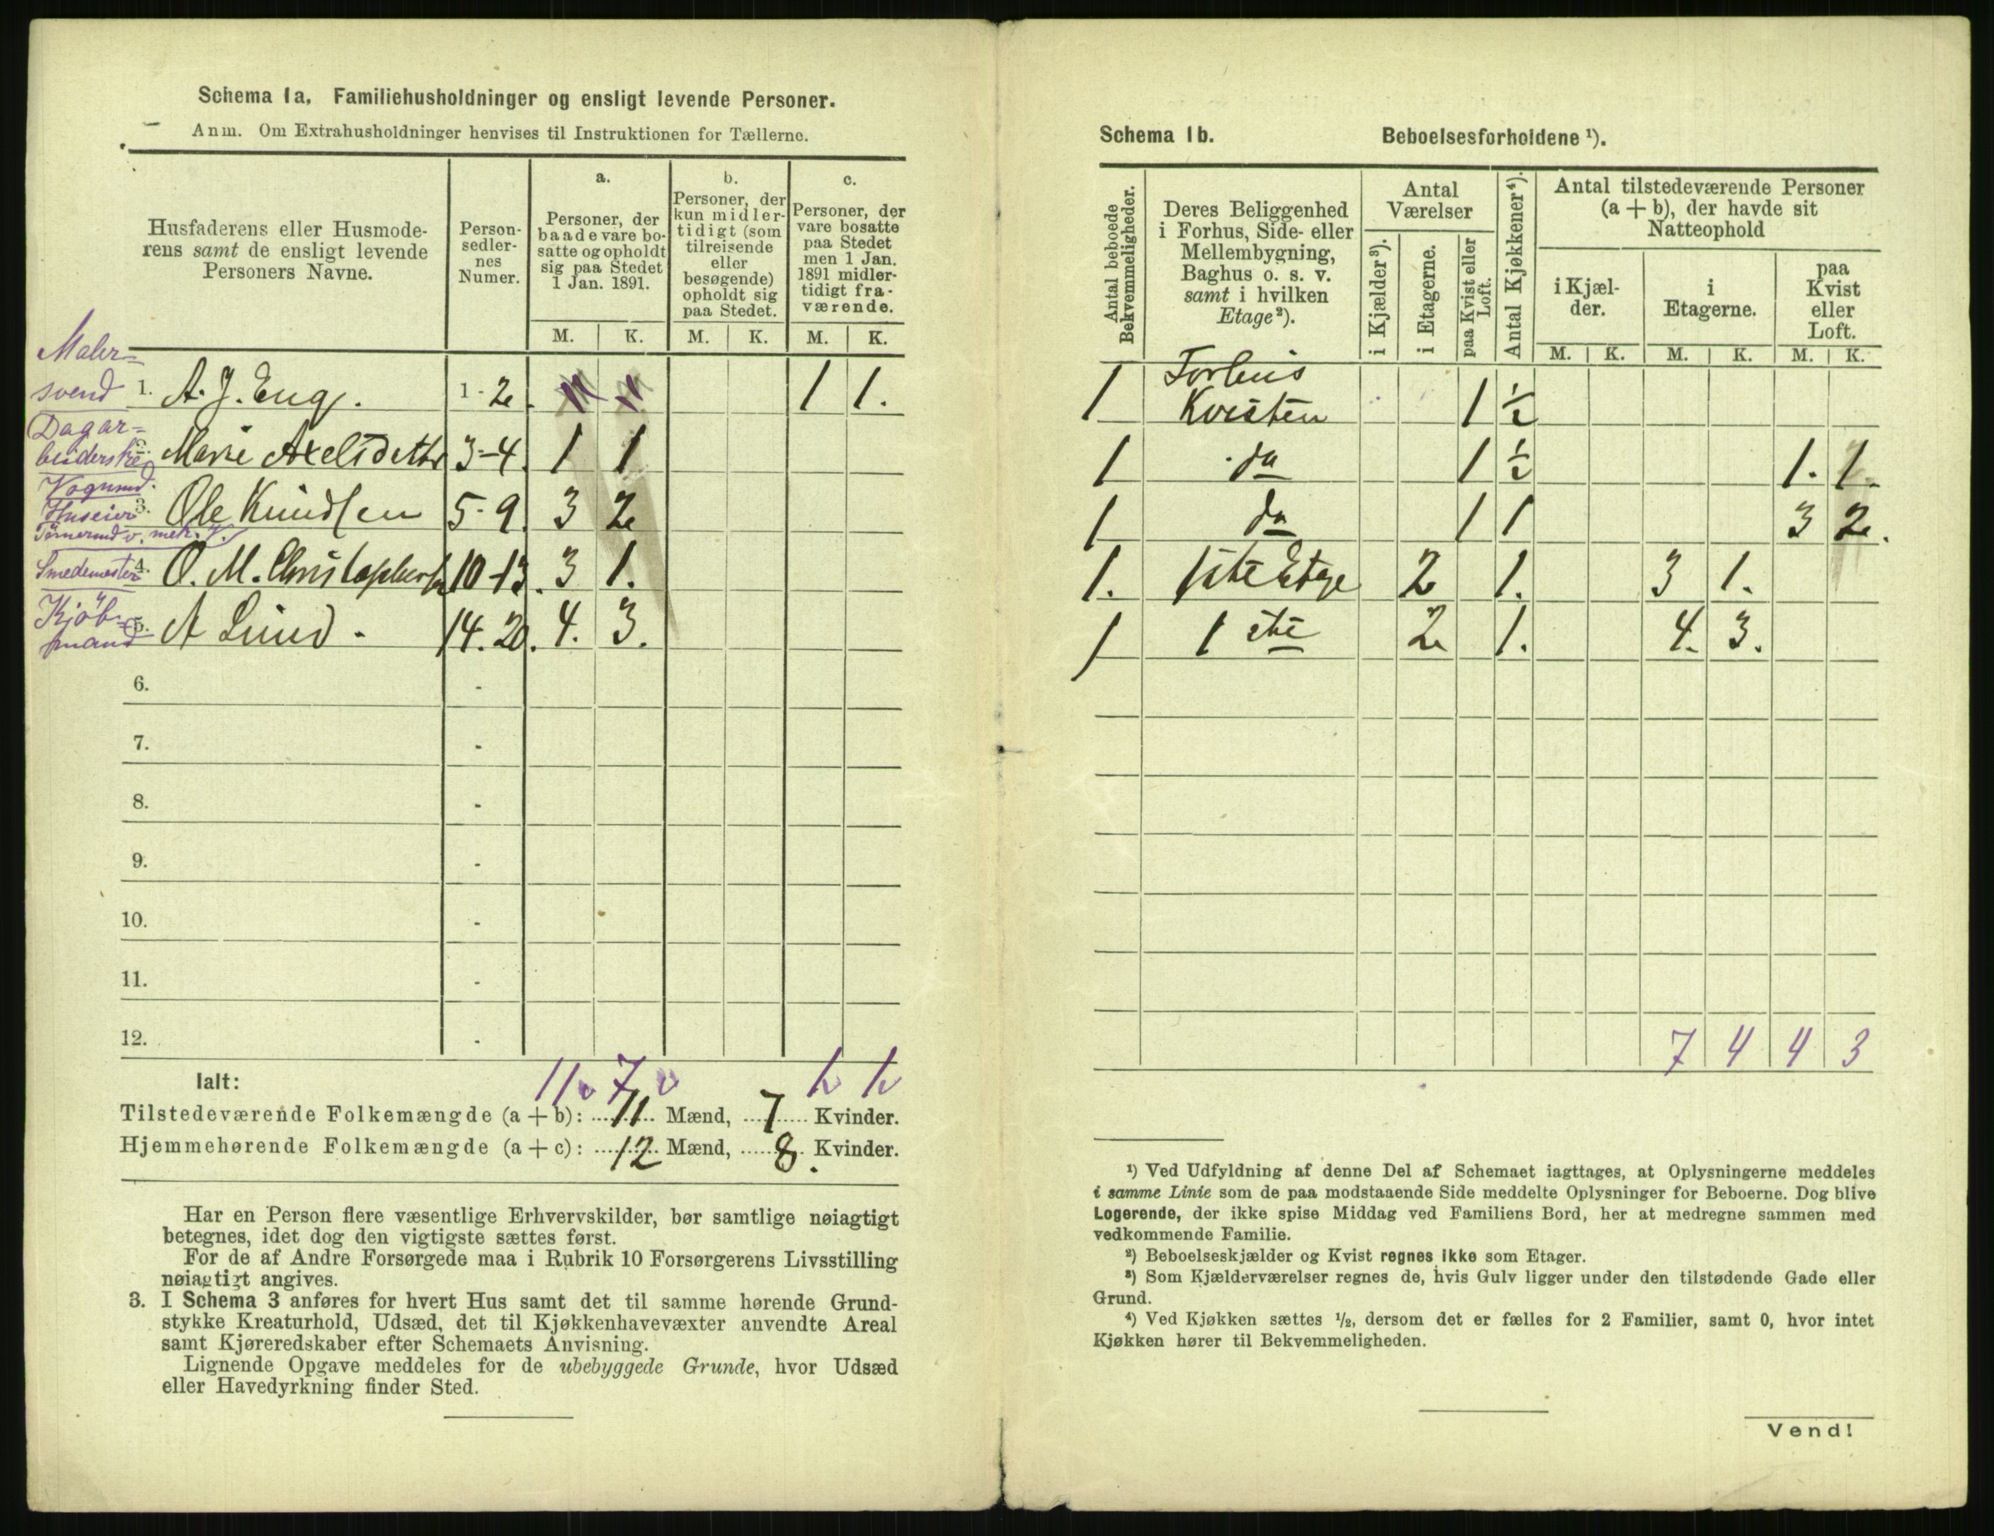 Schema 1a. Familiehusholdninger og ensligt levende Personer.
Anm. Om Extrahusholdninger henvises til Instruktionen for Tællerne.
Husfaderens eller Husmode-
rens samt de ensligt levende
Personers Navne.
Person-
sedler-
nes
Numer.
a.
Personer, der
baade vare bo-
satte og opholdt
sig paa Stedet
1 Jan. 1891.
b.
Personer, der
kun midler-
tidigt (som
tilreisende
eller
besøgende)
opholdt sig
paa Stedet.
c.
Personer, der
vare bosatte
paa Stedet
men 1 Jan.
1891 midler-
tidigt fra-
værende.
M. K. M. K. M. K.
Maler-
svend 1. A. J. Eng. 1-2 1 1.
Dagar-
beiderske 2. Marie Axelsdettr 3-4. 1 1
Vognmd.
Huseier 3. Ole Knudsen 5-9. 3 2
Smedemester 4. O. M. Christophers 10-13. 3 1.
Kjöb-
mand 5. A Lund. 14.20. 4. 3.
6. -
7. -
8. -
9. -
10. -
11. -
12. -
11 7 1 1
Ialt:
Tilstedeværende Folkemængde (a + b): 11 Mænd, 7 Kvinder.
Hjemmehørende Folkemængde (a + c): 12 Mænd, 8. Kvinder.
Har en Person flere væsentlige Erhvervskilder, bør samtlige nøiagtigt
betegnes, idet dog den vigtigste sættes først.
For de af Andre Forsørgede maa i Rubrik 10 Forsørgerens Livsstilling
nøiagtigt angives.
3. I Schema 3 anføres for hvert Hus samt det til samme hørende Grund-
stykke Kreaturhold, Udsæd, det til Kjøkkenhavevæxter anvendte Areal
samt Kjøreredskaber efter Schemaets Anvisning.
Lignende Opgave meddeles for de ubebyggede Grunde, hvor Udsæd
eller Havedyrkning finder Sted.
Schema 1b. Beboelsesforholdene ¹).
Antal beboede
Bekvemmeligheder.
Deres Beliggenhed
i Forhus, Side- eller
Mellembygning,
Baghus o. s. v.
samt i hvilken
Etage²).
Antal
Værelser
i Kjælder³).
i Etagerne.
paa Kvist eller
Loft.
Antal Kjøkkener⁴).
Antal tilstedeværende Personer
(a + b), der havde sit
Natteophold
i Kjæl-
der.
i
Etagerne.
paa
Kvist
eller
Loft.
M. K. M. K. M. K.
1 Forhus
Kvisten 1 ½
1 do 1 ½ 1. 1.
1 do 1 1 3 2.
1. 1ste Etage 2 1. 3 1.
1 1 ste 2 1. 4. 3.
7 4 4 3
¹) Ved Udfyldning af denne Del af Schemaet iagttages, at Oplysningerne meddeles
i samme Linie som de paa modstaaende Side meddelte Oplysninger for Beboerne. Dog blive
Logerende, der ikke spise Middag ved Familiens Bord, her at medregne sammen med
vedkommende Familie.
²) Beboelseskjælder og Kvist regnes ikke som Etager.
³) Som Kjælderværelser regnes de, hvis Gulv ligger under den tilstødende Gade eller
Grund.
⁴) Ved Kjøkken sættes ½, dersom det er fælles for 2 Familier, samt 0, hvor intet
Kjøkken hører til Bekvemmeligheden.
Vend!